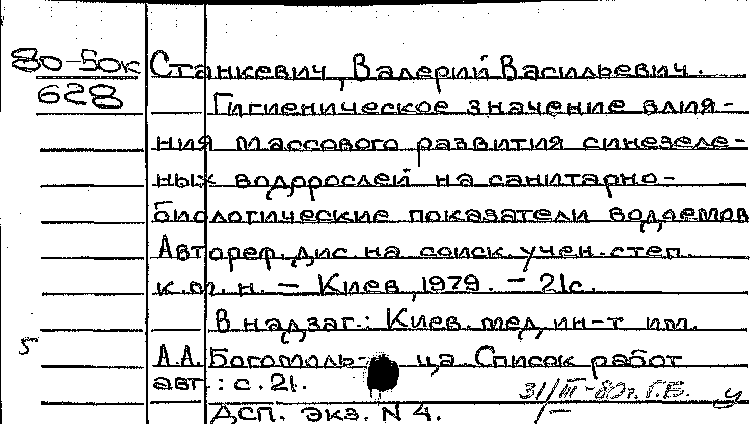 80-50к Станкевич, Валерий Васильевич.
628 Гигиеническое значение влия-
ния массового развития синезеле-
ных водорослей на санитарно-
биологические показатели водоемов
Автореф. дис. на соиск. учен. степ.
к. м. н. - Киев, 1979. - 21с.
В надзаг.: Киев. мед. ин-т им.
5 А.А. Богомоль- ца Список работ
авт.: с. 21.
31/III-80г. Г.Е.
ДСП. экз. N 4.